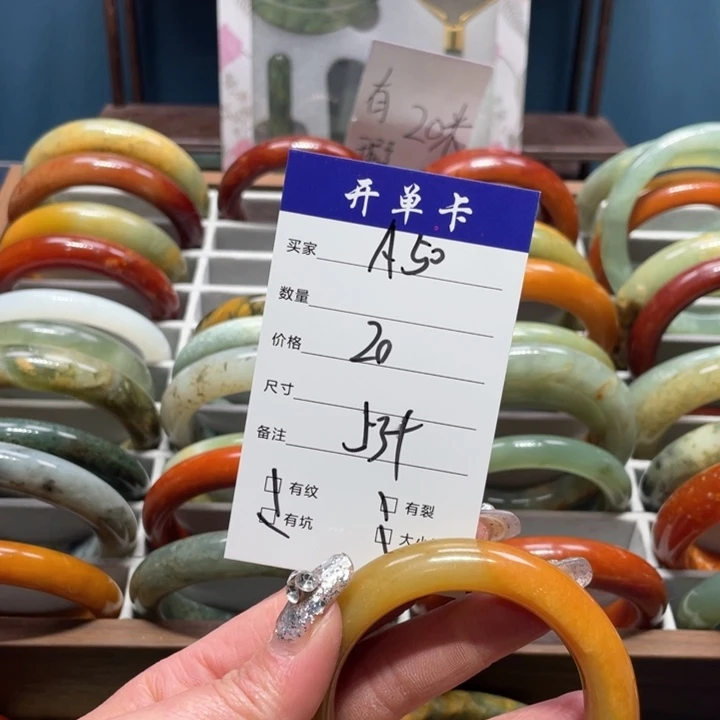 有 20米
开单卡
买家 A50
数量
价格 20
尺寸
备注
有纹
有裂
有坑
大小